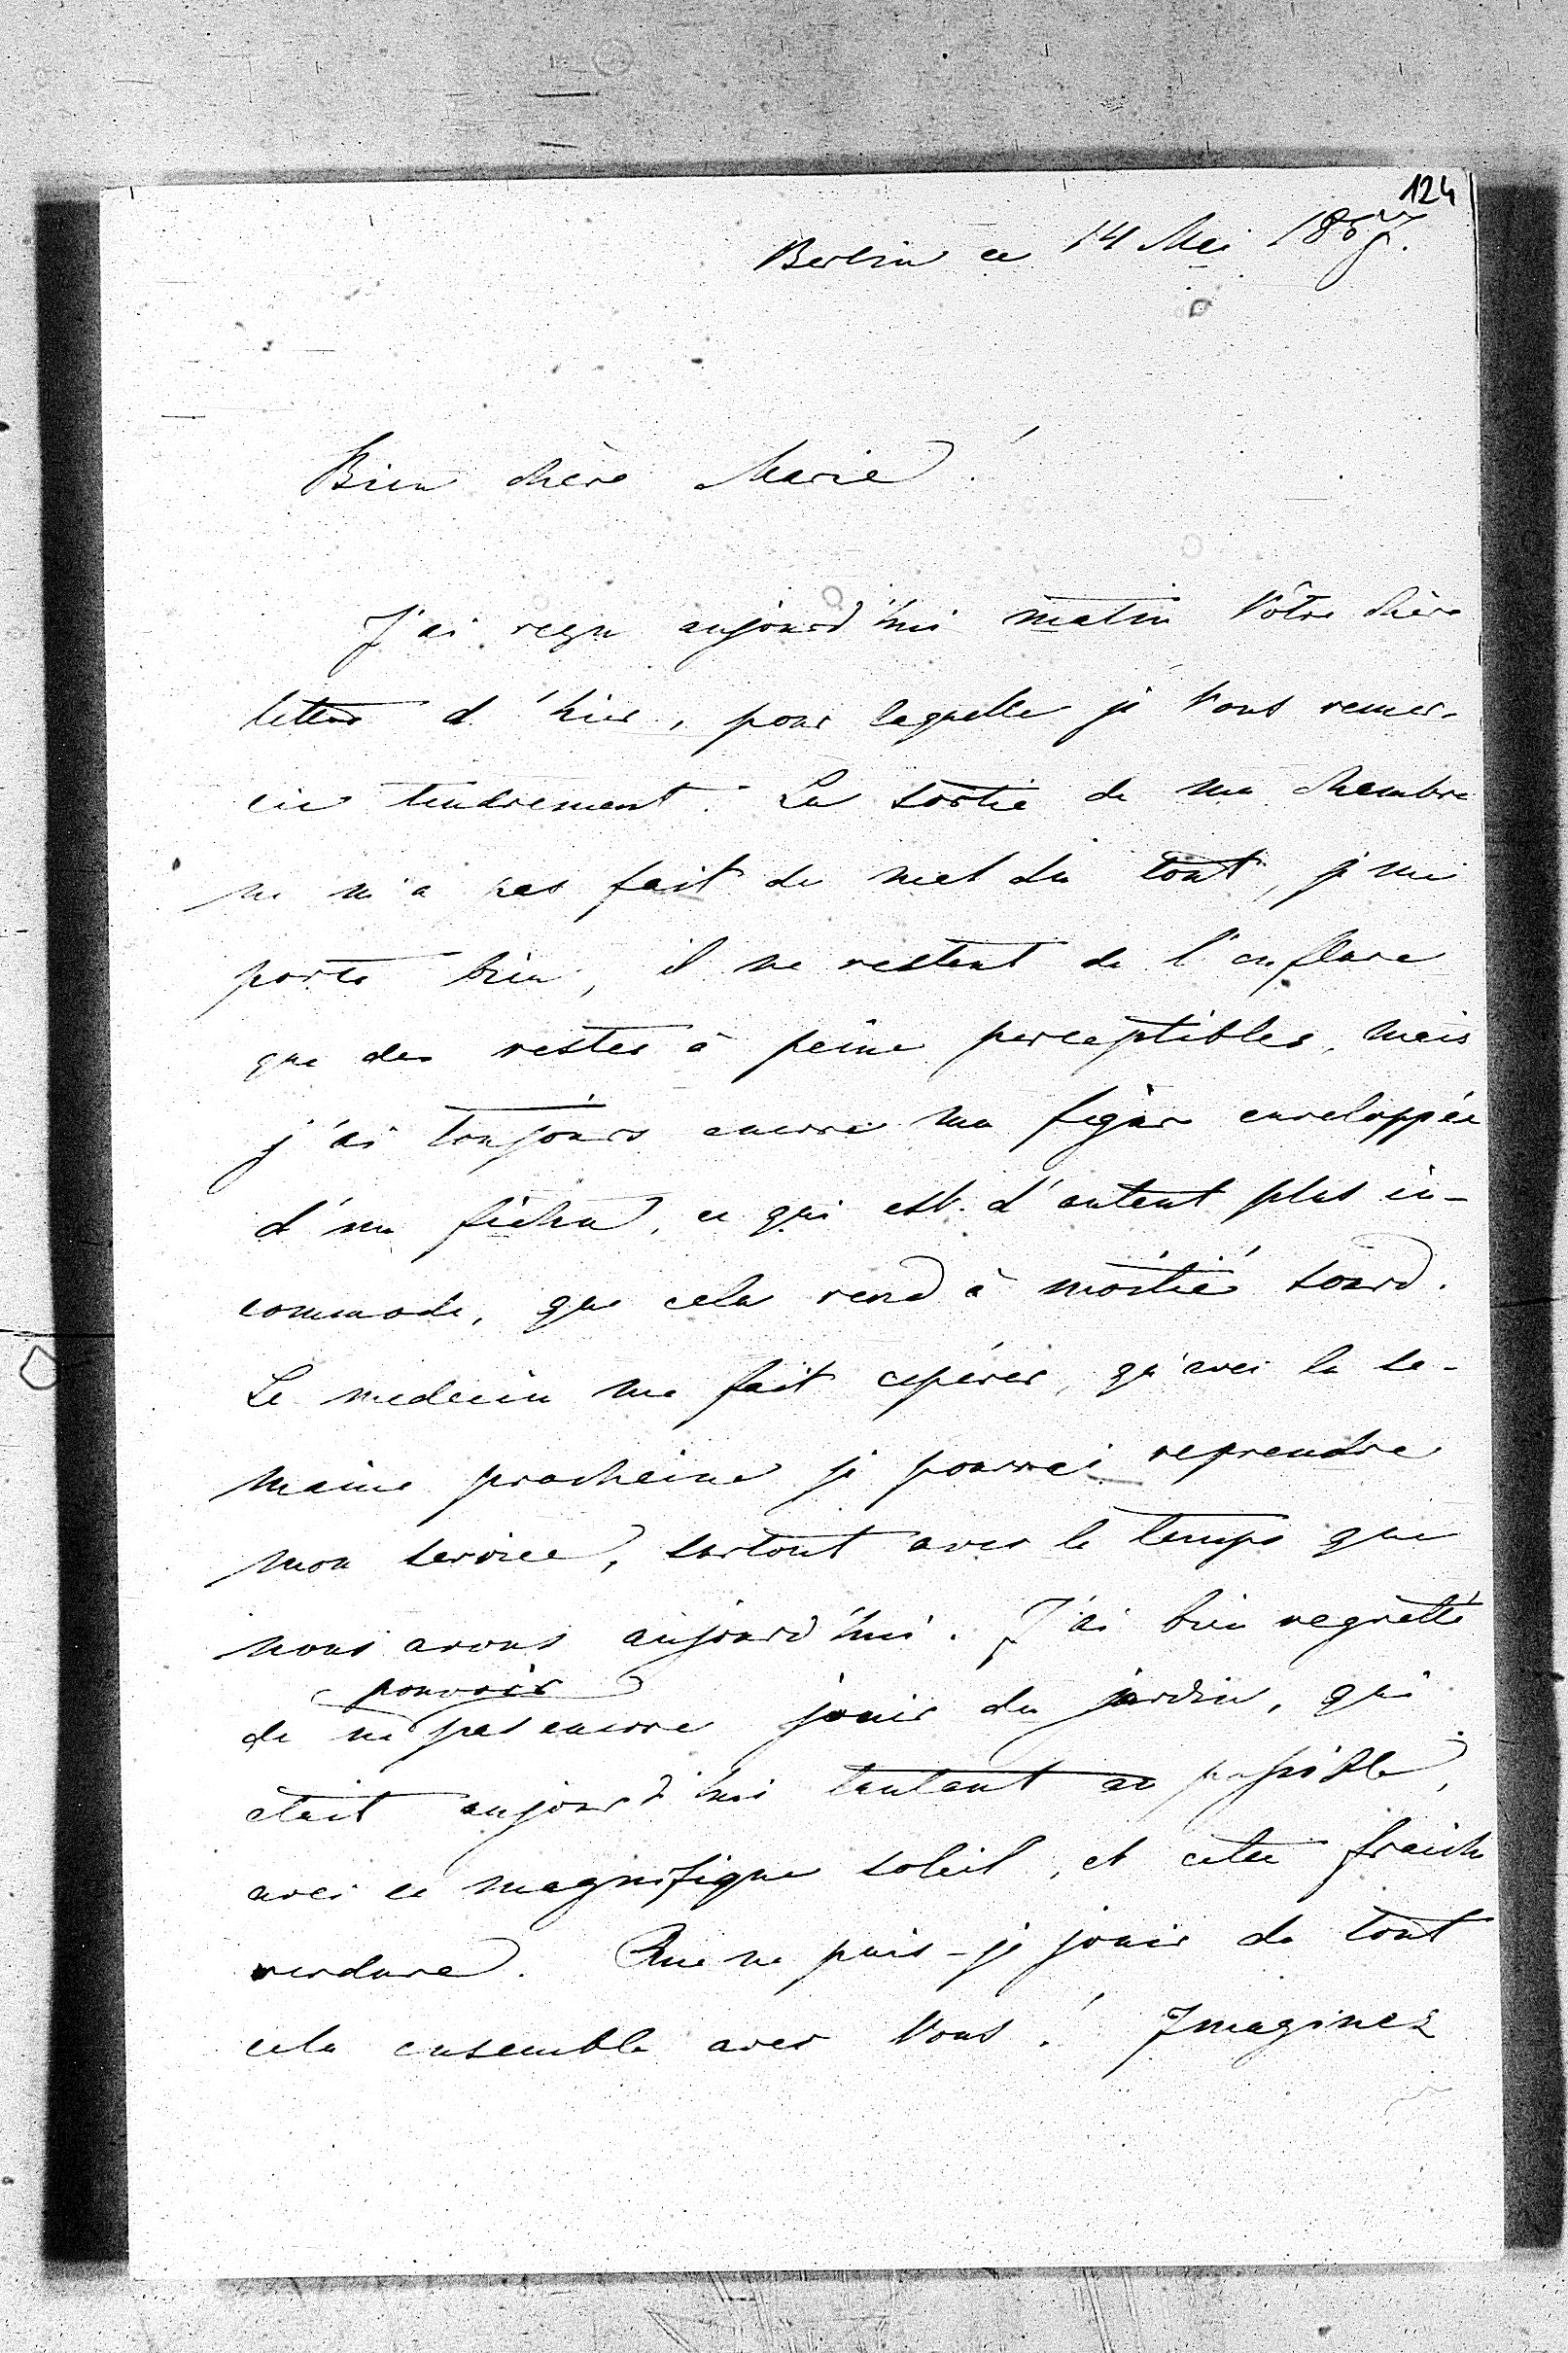 124
Berlin ce 14 Mai 1867.
Bien chère Marie!
J'ai reçu aujourd'hui matin Vôtre chère
lettre d'hier, pour laquelle je Vous remer-
cie tendrement. La sortie de ma chambre
ne m'a pas fait de mal du tout, je me
porte bien, il ne restent de l'enflure
que des restes à peine perceptibles, mais
j'ai toujours encore ma figure enveloppée
d'un fichu, ce qui est d'autant plus in-
commode, que cela rend à moitié sourd.
Le medecin me fait espérer, qu'avec la se-
maine prochaine je pourrai reprendre
mon service, surtout avec le temps que
nous avons aujourd'hui. J'ai bien regretté
pouvoir
de ne pas encore jouir du jardin, qui
était aujourd'hui tentant au possible,
avec ce magnifique soleil, et cette fraiche
verdure. Que ne puis-je jouir de tout
cela ensemble avec Vous! Imaginez